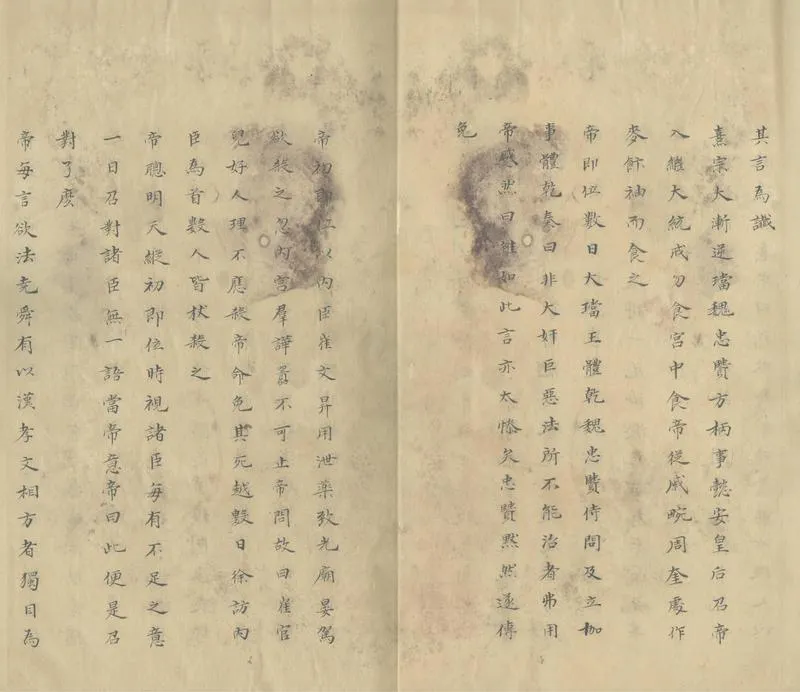 其言為誠
熹宗大漸逆璫魏忠賢方柄事懿安皇后召帝
入繼大統戒勿食宮中食帝從戚畹周奎處作
麥餅袖而食之
帝即位數日大璫王體乾魏忠賢侍問及立枷
事體乾奏曰非大奸巨惡法所不能治者弗用
帝慼然曰雖如此言亦太慘矣忠賢默然遂傳
免
帝初即位以內臣崔文昇用泄藥致光廟晏駕
欲殺之忽內宮羣譁囂不可止帝問故曰崔官
兒好人理不應殺帝命免其死越數日徐訪內
臣為首數人皆杖殺之
帝聰明天縱初即位時視諸臣每有不足之意
一日召對諸臣無一語當帝意帝曰此便是召
對了麽
帝每言欲法堯舜有以漢孝文相方者獨目為